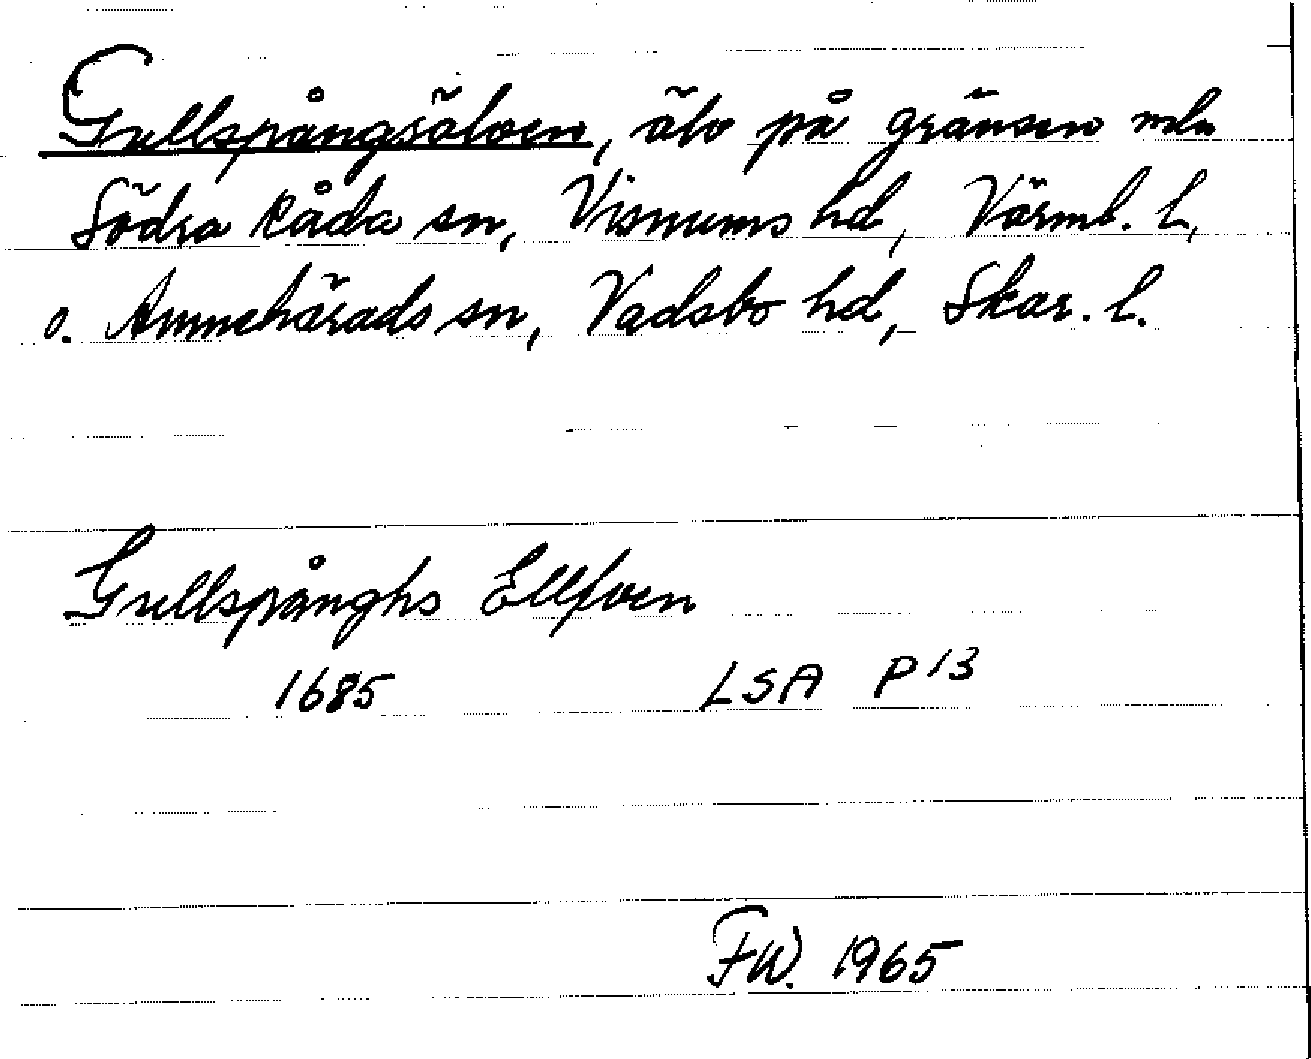 Gullspångsälven, älv på gränsen mln
Södra Råda sn, Visnums hd, Värml. l,
o. Amnehärads sn, Vadsbo hd, Skar. l.
Gullspånghs Ellfven
1685 LSA P 13
FW. 1965